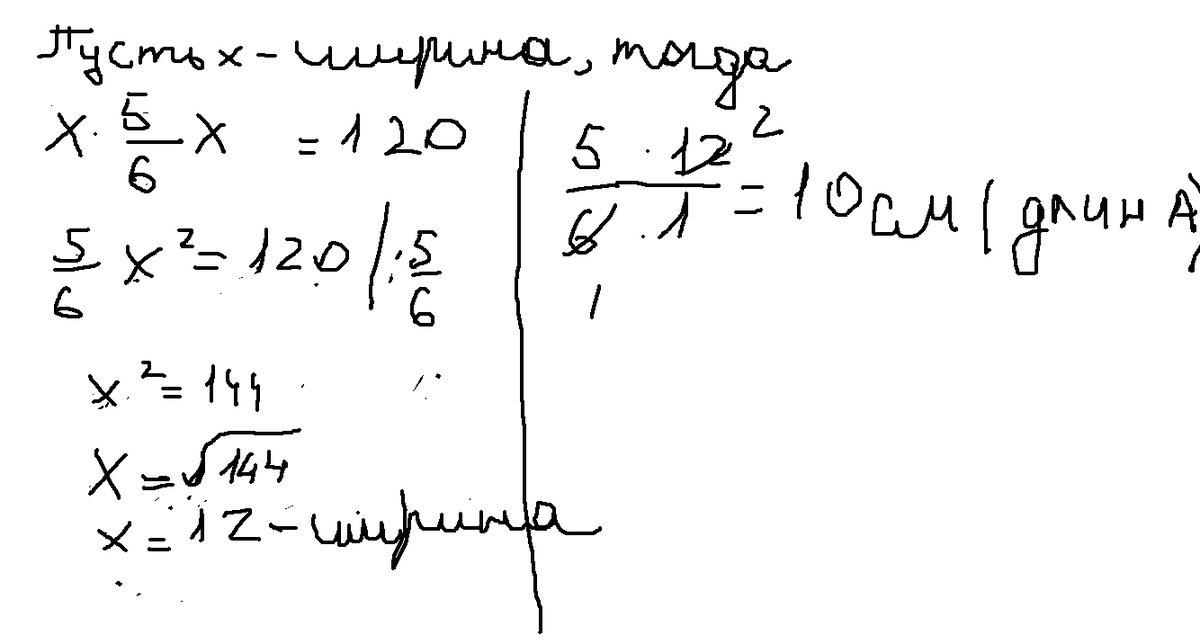 Пусть x - ширина, тогда
x · 5/6 x = 120
5/6 x² = 120 | : 5/6
x² = 144
x = √144
x = 12 - ширина
5 · 12 2
6 · 1 = 10 см (длинА)
1